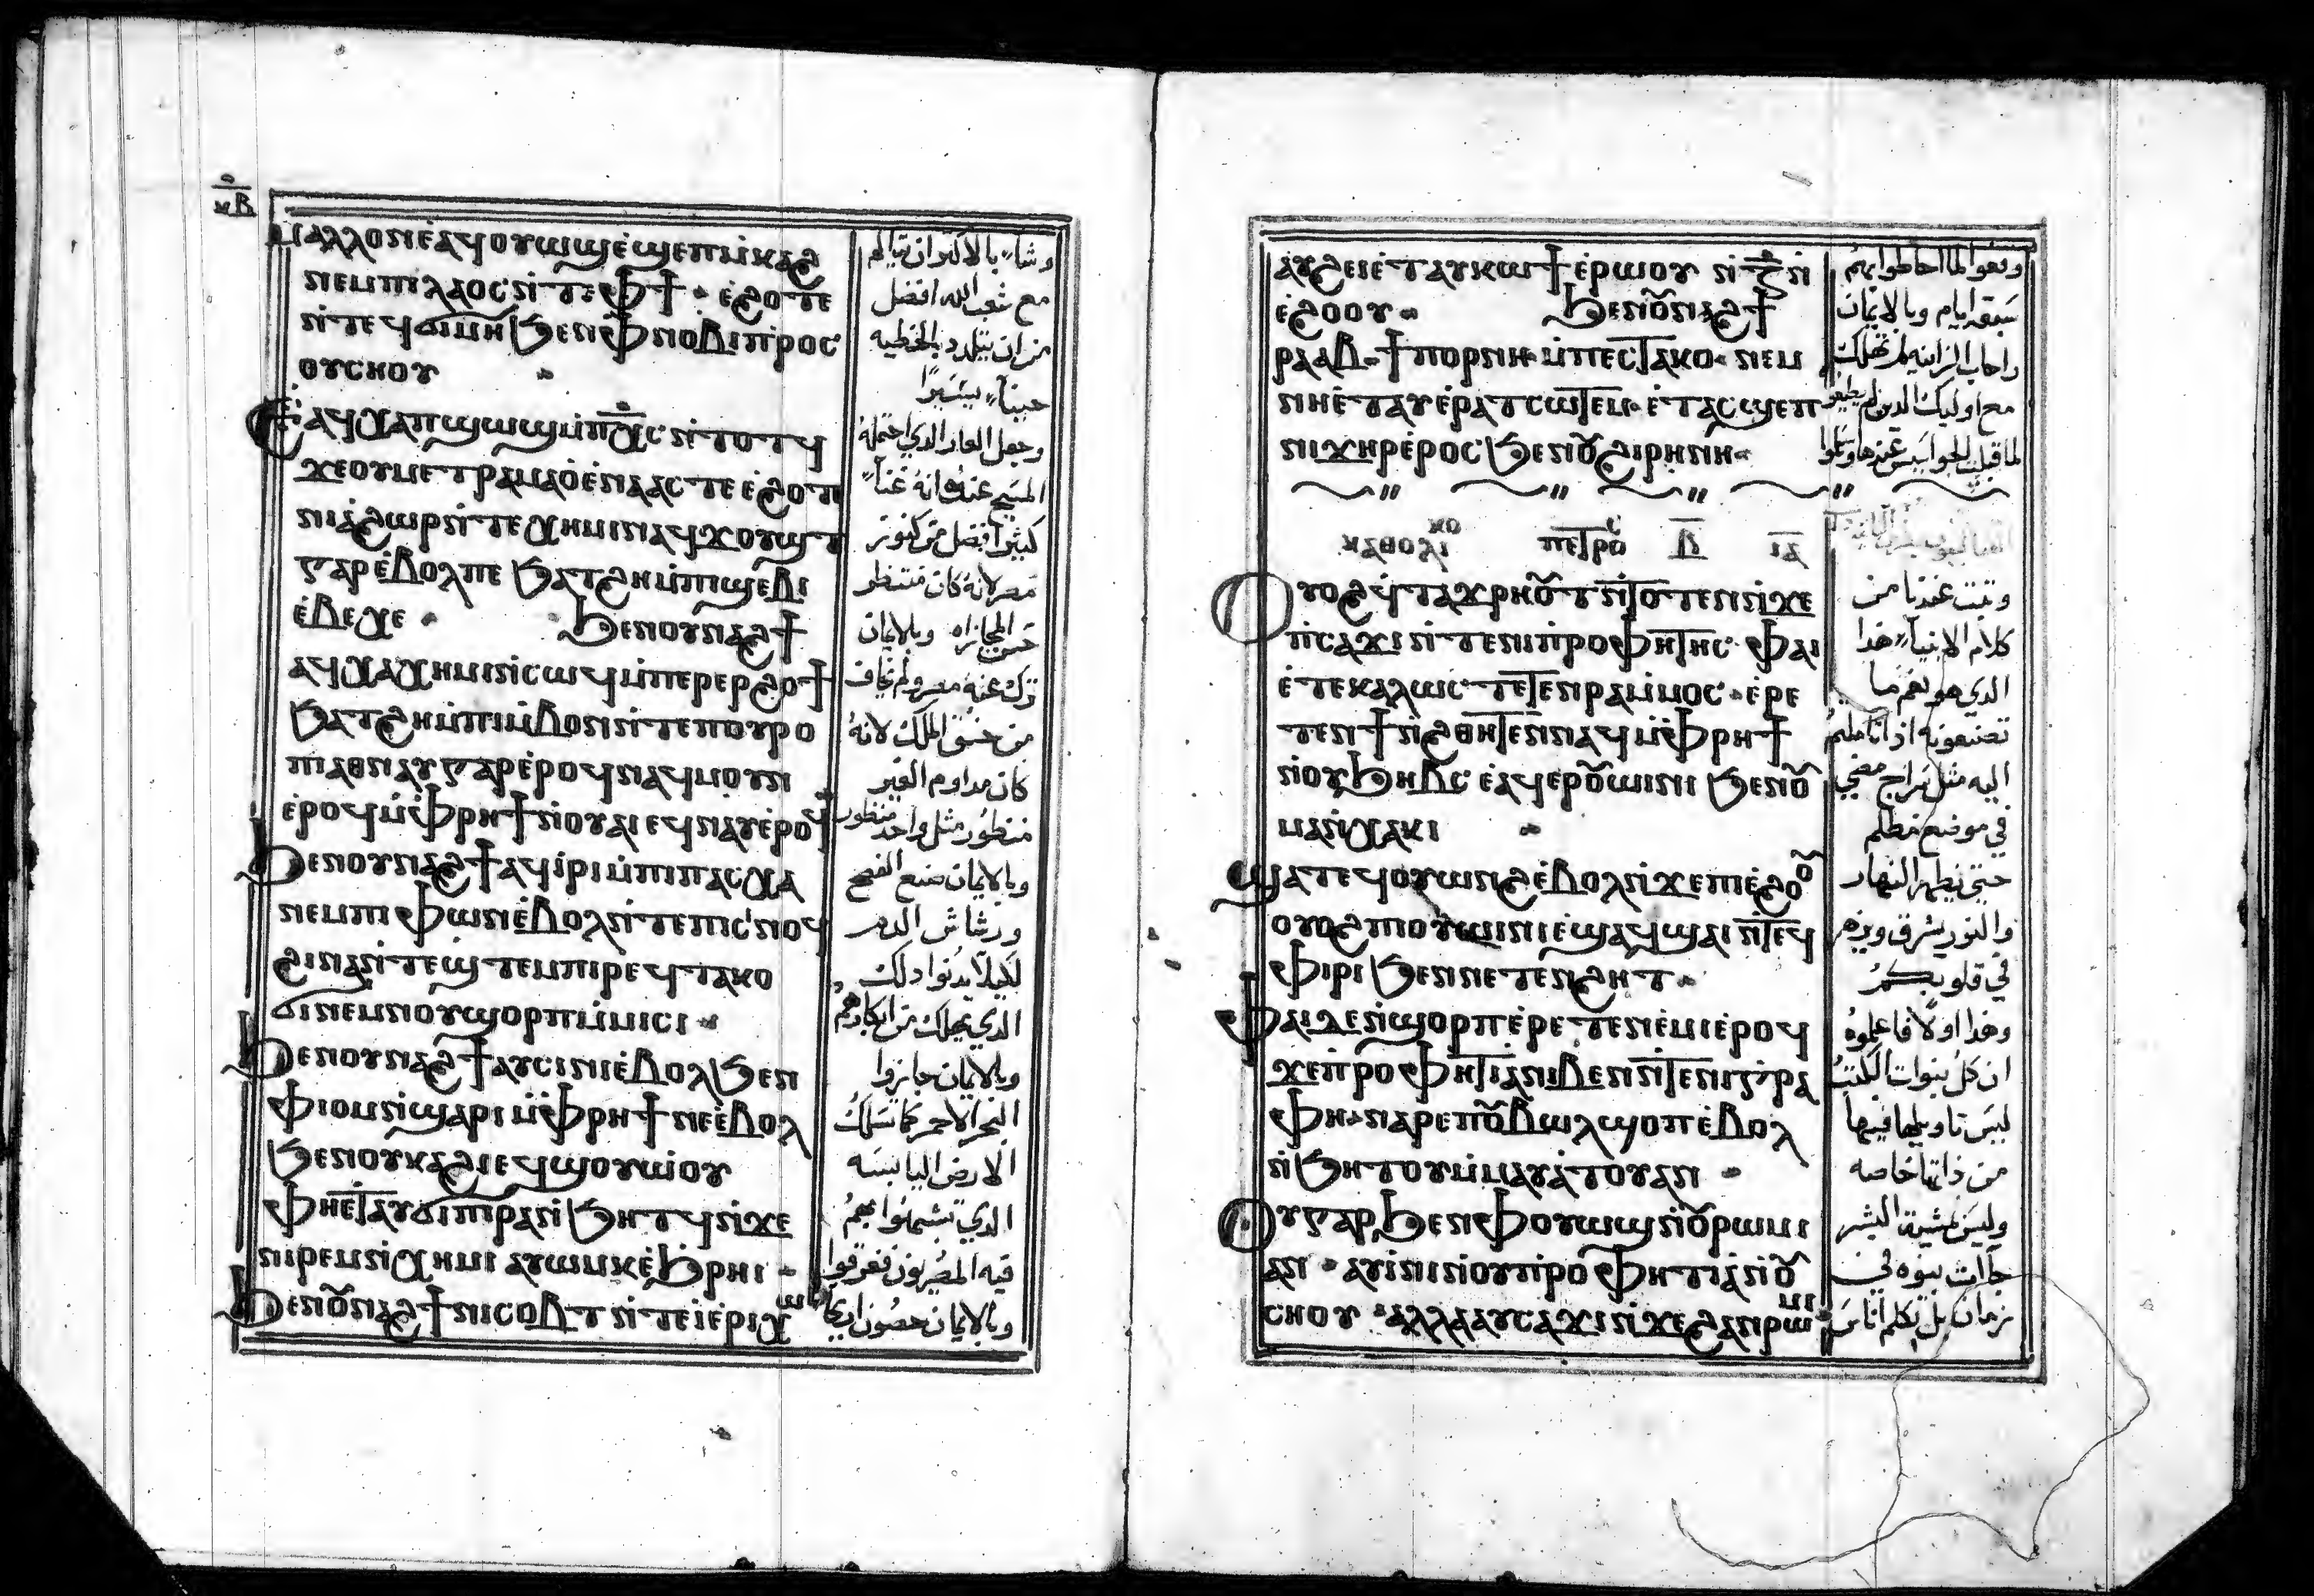 ⲙⲁⲗⲗⲟⲛ ⲉ̀ⲁϥⲟⲩⲱϣ ⲉ̀ϣⲉⲡⲙ̀ⲕⲁϩ
ⲛⲉⲙ ⲡⲓⲗⲁⲟⲥ ⲛ̀ⲧⲉ ⲫϯ · ⲉ̀ϩⲟⲧⲉ
ⲛ̀ⲧⲉϥϭⲓⲙⲏ ϧⲉⲛ ⲫⲛⲟⲃⲓ ⲡⲣⲟⲥ
ⲟⲩⲥⲏⲟⲩ
ⲉ̀ⲁϥⲭⲁⲡϣⲱϣ ⲙ̀ⲡⲭ̅ⲥ ⲛ̀ⲧⲟⲧϥ
ϫⲉ ⲟⲩⲙⲉⲧⲣⲁⲙⲁⲟ̀ ⲉ̀ⲛⲁⲁⲥ ⲧⲉ ⲉ̀ϩⲟⲧⲉ
ⲛⲓⲁ̀ϩⲱⲣ ⲛ̀ⲧⲉ ⲭⲏⲙⲓ ⲛⲁϥϫⲟⲩϣⲧ
ⲅⲁⲣ ⲉ̀ⲃⲟⲗ ⲡⲉ ϧⲁⲧϩⲏ ⲙ̀ⲡⲓϣⲉⲃⲓ
ⲉ̀ⲃⲉⲭⲉ · ϧⲉⲛ ⲟⲩⲛⲁϩϯ
ⲁϥⲭⲁ ⲭⲏⲙⲓ ⲛ̀ⲥⲱϥ ⲙ̀ⲡⲉⲣⲉⲣϩⲟϯ
ϧⲁⲧϩⲏ ⲙ̀ⲡⲓⲙ̀ⲃⲟⲛ ⲛ̀ⲧⲉ ⲡⲟⲩⲣⲟ
ⲡⲓⲁⲑⲛⲁⲩ ⲅⲁⲣ ⲉ̀ⲣⲟϥ ⲛⲁϥⲙⲟⲩⲛ
ⲉ̀ⲣⲟϥ ⲙ̀ⲫⲣⲏϯ ⲛ̀ⲟⲩⲁⲓ ⲉϥⲛⲁⲩ ⲉ̀ⲣⲟϥ
ϧⲉⲛ ⲟⲩⲛⲁϩϯ ⲁϥⲓ̀ⲣⲓ ⲙ̀ⲡⲓⲡⲁⲥⲭⲁ
ⲛⲉⲙ ⲡⲓⲫⲱⲛ ⲉ̀ⲃⲟⲗ ⲛ̀ⲧⲉ ⲡⲓⲥⲛⲟϥ
ϩⲓⲛⲁ ⲛ̀ⲧⲉϣⲧⲉⲙ ⲡⲓⲣⲉϥⲧⲁⲕⲟ
ϭⲓ ⲛⲉⲙ ⲛⲟⲩϣⲟⲣⲡ ⲙ̀ⲙⲓⲥⲓ ·
ϧⲉⲛ ⲟⲩⲛⲁϩϯ ⲁⲩⲥⲓⲛⲓ ⲉ̀ⲃⲟⲗ ϧⲉⲛ
ⲫⲓⲟⲙ ⲛ̀ϣⲁⲣⲓ ⲙ̀ⲫⲣⲏϯ ⲛⲉ ⲉ̀ⲃⲟⲗ
ϧⲉⲛ ⲟⲩⲕⲁϩⲓ ⲉϥϣⲟⲩⲱ̀ⲟⲩ
ⲫⲏⲉⲧⲁⲩϭⲓⲡⲓⲣⲁ ⲛ̀ϧⲏⲧϥ ⲛ̀ϫⲉ
ⲛⲓⲣⲉⲙⲛ̀ⲭⲏⲙⲓ ⲁⲩⲱⲙⲕ ⲉ̀ϧⲣⲏⲓ ·
ϧⲉⲛ ⲟⲩ̅ⲛⲁϩϯ ⲛⲓⲥⲟⲃⲧ ⲛ̀ⲧⲉ ⲓⲉⲣⲓⲭⲱ
وشاء بالاكثر ان يتالم
مع شعب الله افضل
من ان يتلدد بالخطيه
حيناً يسيراً
وجعل العار الدي احتمله
المسيح عنده انه غناً
كثيراً افضل من كنوز
مصر لانه كان منتظر
حسن المجازاه وبالايمان
ترك عنه مصر ولم يخاف
من حنق الملك لانه
كان مداوم الغير
منظور مثل واحد منظور
وبالايمان صنع الفصح
ورشاش الدم
لكيلا يدنوا دلك
الدي يهلك من ابكارهم
وبالايمان جازوا
البحر الاحمر كما تسلك
الارض اليابسه
الدي تشبهوا بهم
فيه المصريون فغرقوا
وبالايمان حصون اريحا
ⲁⲩϩⲉⲓ ⲉ̀ⲧⲁⲩⲕⲱϯ ⲉ̀ⲣⲱⲟⲩ ⲛ̀ⲍ̅ ⲛ̀
ⲉ̀ϩⲟⲟⲩ · ϧⲉⲛ ⲟⲩ̅ⲛⲁϩϯ
ⲣⲁⲁⲃ ϯⲡⲟⲣⲛⲏ ⲙ̀ⲡⲉⲥⲧⲁⲕⲟ · ⲛⲉⲙ
ⲛⲏⲉ̀ⲧⲁⲩⲉ̀ⲣⲁⲧⲥⲱⲧⲉⲙ · ⲉ̀ⲧⲁⲥϣⲉⲡ
ⲛⲓϫⲏⲣ ⲉ̀ⲣⲟⲥ ϧⲉⲛ ⲟⲩ̅ϩⲓⲣⲏⲛⲏ ·
ⲕⲁⲑⲟⲗⲓⲕⲟ ⲡⲉⲧⲣⲟⲩ ⲃ̅ ⲓⲁ̅
ⲟⲩⲟϩ ϥ̀ⲧⲁϫⲣⲏⲟⲩ̅ⲧ ⲛ̀ⲧⲟⲧⲉⲛ ⲛ̀ϫⲉ
ⲡⲥⲁϫⲓ ⲛ̀ⲧⲉ ⲛⲓⲡⲣⲟⲫⲏⲧⲏⲥ · ⲫⲁⲓ
ⲉ̀ⲧⲉ ⲕⲁⲗⲱⲥ ⲧⲉⲧⲉⲛⲣⲁ ⲙ̀ⲙⲟⲥ · ⲉ̀ⲣⲉ
ⲧⲉⲛϯ ⲛ̀ϩⲑⲏⲧⲉⲛ ⲛⲁϥ ⲙ̀ⲫⲣⲏϯ
ⲛ̀ⲟⲩϧⲏⲃⲥ ⲉ̀ϥⲉⲣⲟⲩ̅ⲱⲓⲛⲓ ϧⲉⲛ ⲟⲩ̅
ⲙⲁ ⲛ̀ⲭⲁⲕⲓ ·
ϣⲁⲧⲉϥⲟⲩⲱⲛϩ ⲉ̀ⲃⲟⲗ ⲛ̀ϫⲉ ⲡⲓⲉ̀ϩⲟⲟⲩ̅
ⲟⲩⲟϩ ⲡⲓⲟⲩⲱⲓⲛⲓ ⲉ̀ϣⲁϥϣⲁⲓ ⲛ̀ⲧⲉϥ
ⲫⲓⲣⲓ ϧⲉⲛ ⲛⲉⲧⲉⲛϩⲏⲧ ·
ⲫⲁⲓ ϫⲉ ⲛ̀ϣⲟⲣⲡ ⲉ̀ⲣⲉⲧⲉⲛⲉ̀ⲙⲓ ⲉ̀ⲣⲟϥ
ϫⲉ ⲡⲣⲟⲫⲏⲧⲓⲁ ⲛⲓⲃⲉⲛ ⲛ̀ⲧⲉ ⲛⲓⲅ̀ⲣⲁ
ⲫⲏ · ⲛⲁⲣⲉ ⲡⲟⲩ̅ⲃⲱⲗ ϣⲟⲡ ⲉ̀ⲃⲟⲗ
ⲛ̀ϧⲏⲧⲟⲩ ⲙ̀ⲙⲁⲩⲁ̀ⲧⲟⲩ ⲁⲛ ·
ⲟⲩ ⲅⲁⲣ ϧⲉⲛ ⲫⲟⲩⲱϣ ⲛ̀ⲟⲩ̅ⲣⲱⲙⲓ
ⲁⲛ · ⲁⲩⲓ̀ⲛⲓ ⲛ̀ⲟⲩⲡⲣⲟⲫⲏⲧⲓⲁ ⲛ̀ⲟⲩ̅
ⲥⲏⲟⲩ · ⲁⲗⲗⲁ ⲁⲩⲥⲁϫⲓ ⲛ̀ϫⲉ ϩⲁⲛⲣⲱⲙⲓ
وقعوا لما احاطوا بهم
سبعه ايام وبالايمان
راحاب الزانيه لم تهلك
مع اوليك الدين لم يطيعوا
لما قبلت الجواسيس عندها
وثبت عندنا من
كلام الانبياء هدا
الدي هو نعم ما
تصنعونه ادا تاملتم
اليه مثل سراج مضي
في موضع مظلم
حتى يظهر النهار
والنور يشرق ويزهر
في قلوبكم
وهدا اولاً فاعلموه
ان كل نبوات الكتب
ليس تاويلها فيها
من داتها خاصه
وليس بمشية البشر
جاات نبوه في
زمان بل تكلم اناس